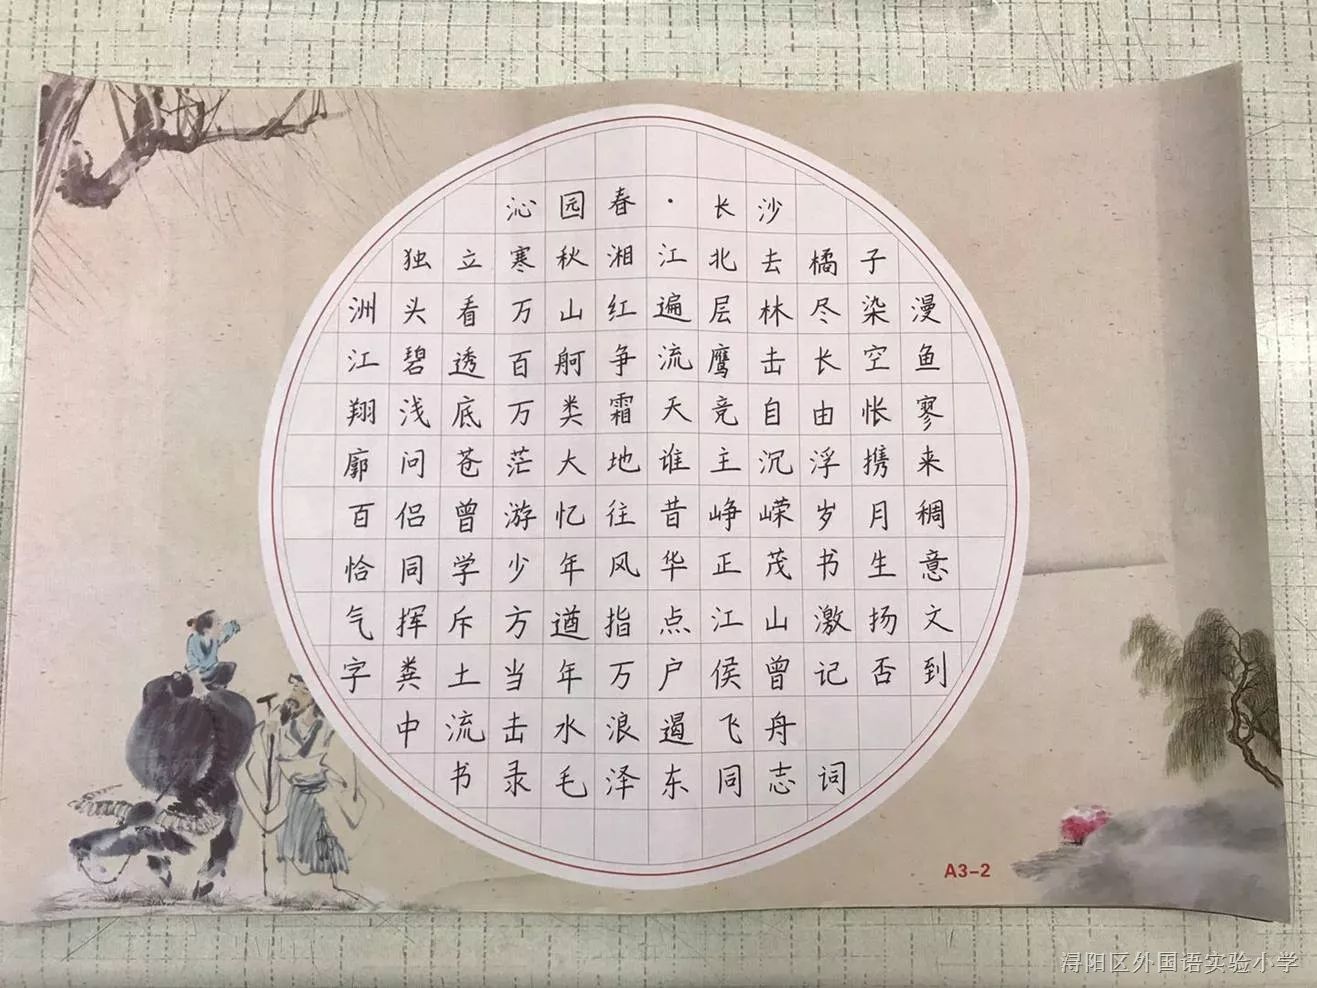 沁园春·长沙
独立寒秋湘江北去橘子
洲头看万山红遍层林尽染漫
江碧透百舸争流鹰击长空鱼
翔浅底万类霜天竞自由怅寥
廓问苍茫大地谁主沉浮携来
百侣曾游忆往昔峥嵘岁月稠
恰同学少年风华正茂书生意
气挥斥方遒指点江山激扬文
字粪土当年万户侯曾记否到
中流击水浪遏飞舟
书录毛泽东同志词
A3-2
浔阳区外国语实验小学